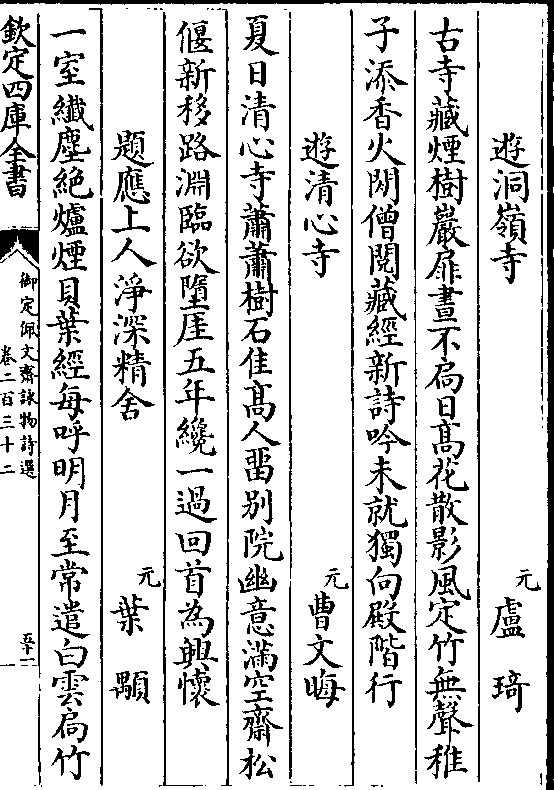 遊洞嶺寺　元　盧琦
古寺藏煙樹巖扉晝不扃日髙花散影風定竹無聲稚
子添香火閑僧閱藏經新詩吟未就獨向殿階行
遊清心寺　元　曹文晦
夏日清心寺蕭蕭樹石佳髙人畱别院幽意滿空齋松
偃新移路淵臨欲墮厓五年纔一過回首為興懷
題應上人淨深精舍　元　葉顒
一室纖塵絶爐煙貝葉經每呼明月至常遣白雲扃竹
欽定四庫全書
御定佩文齋詠物詩選
卷二百三十二